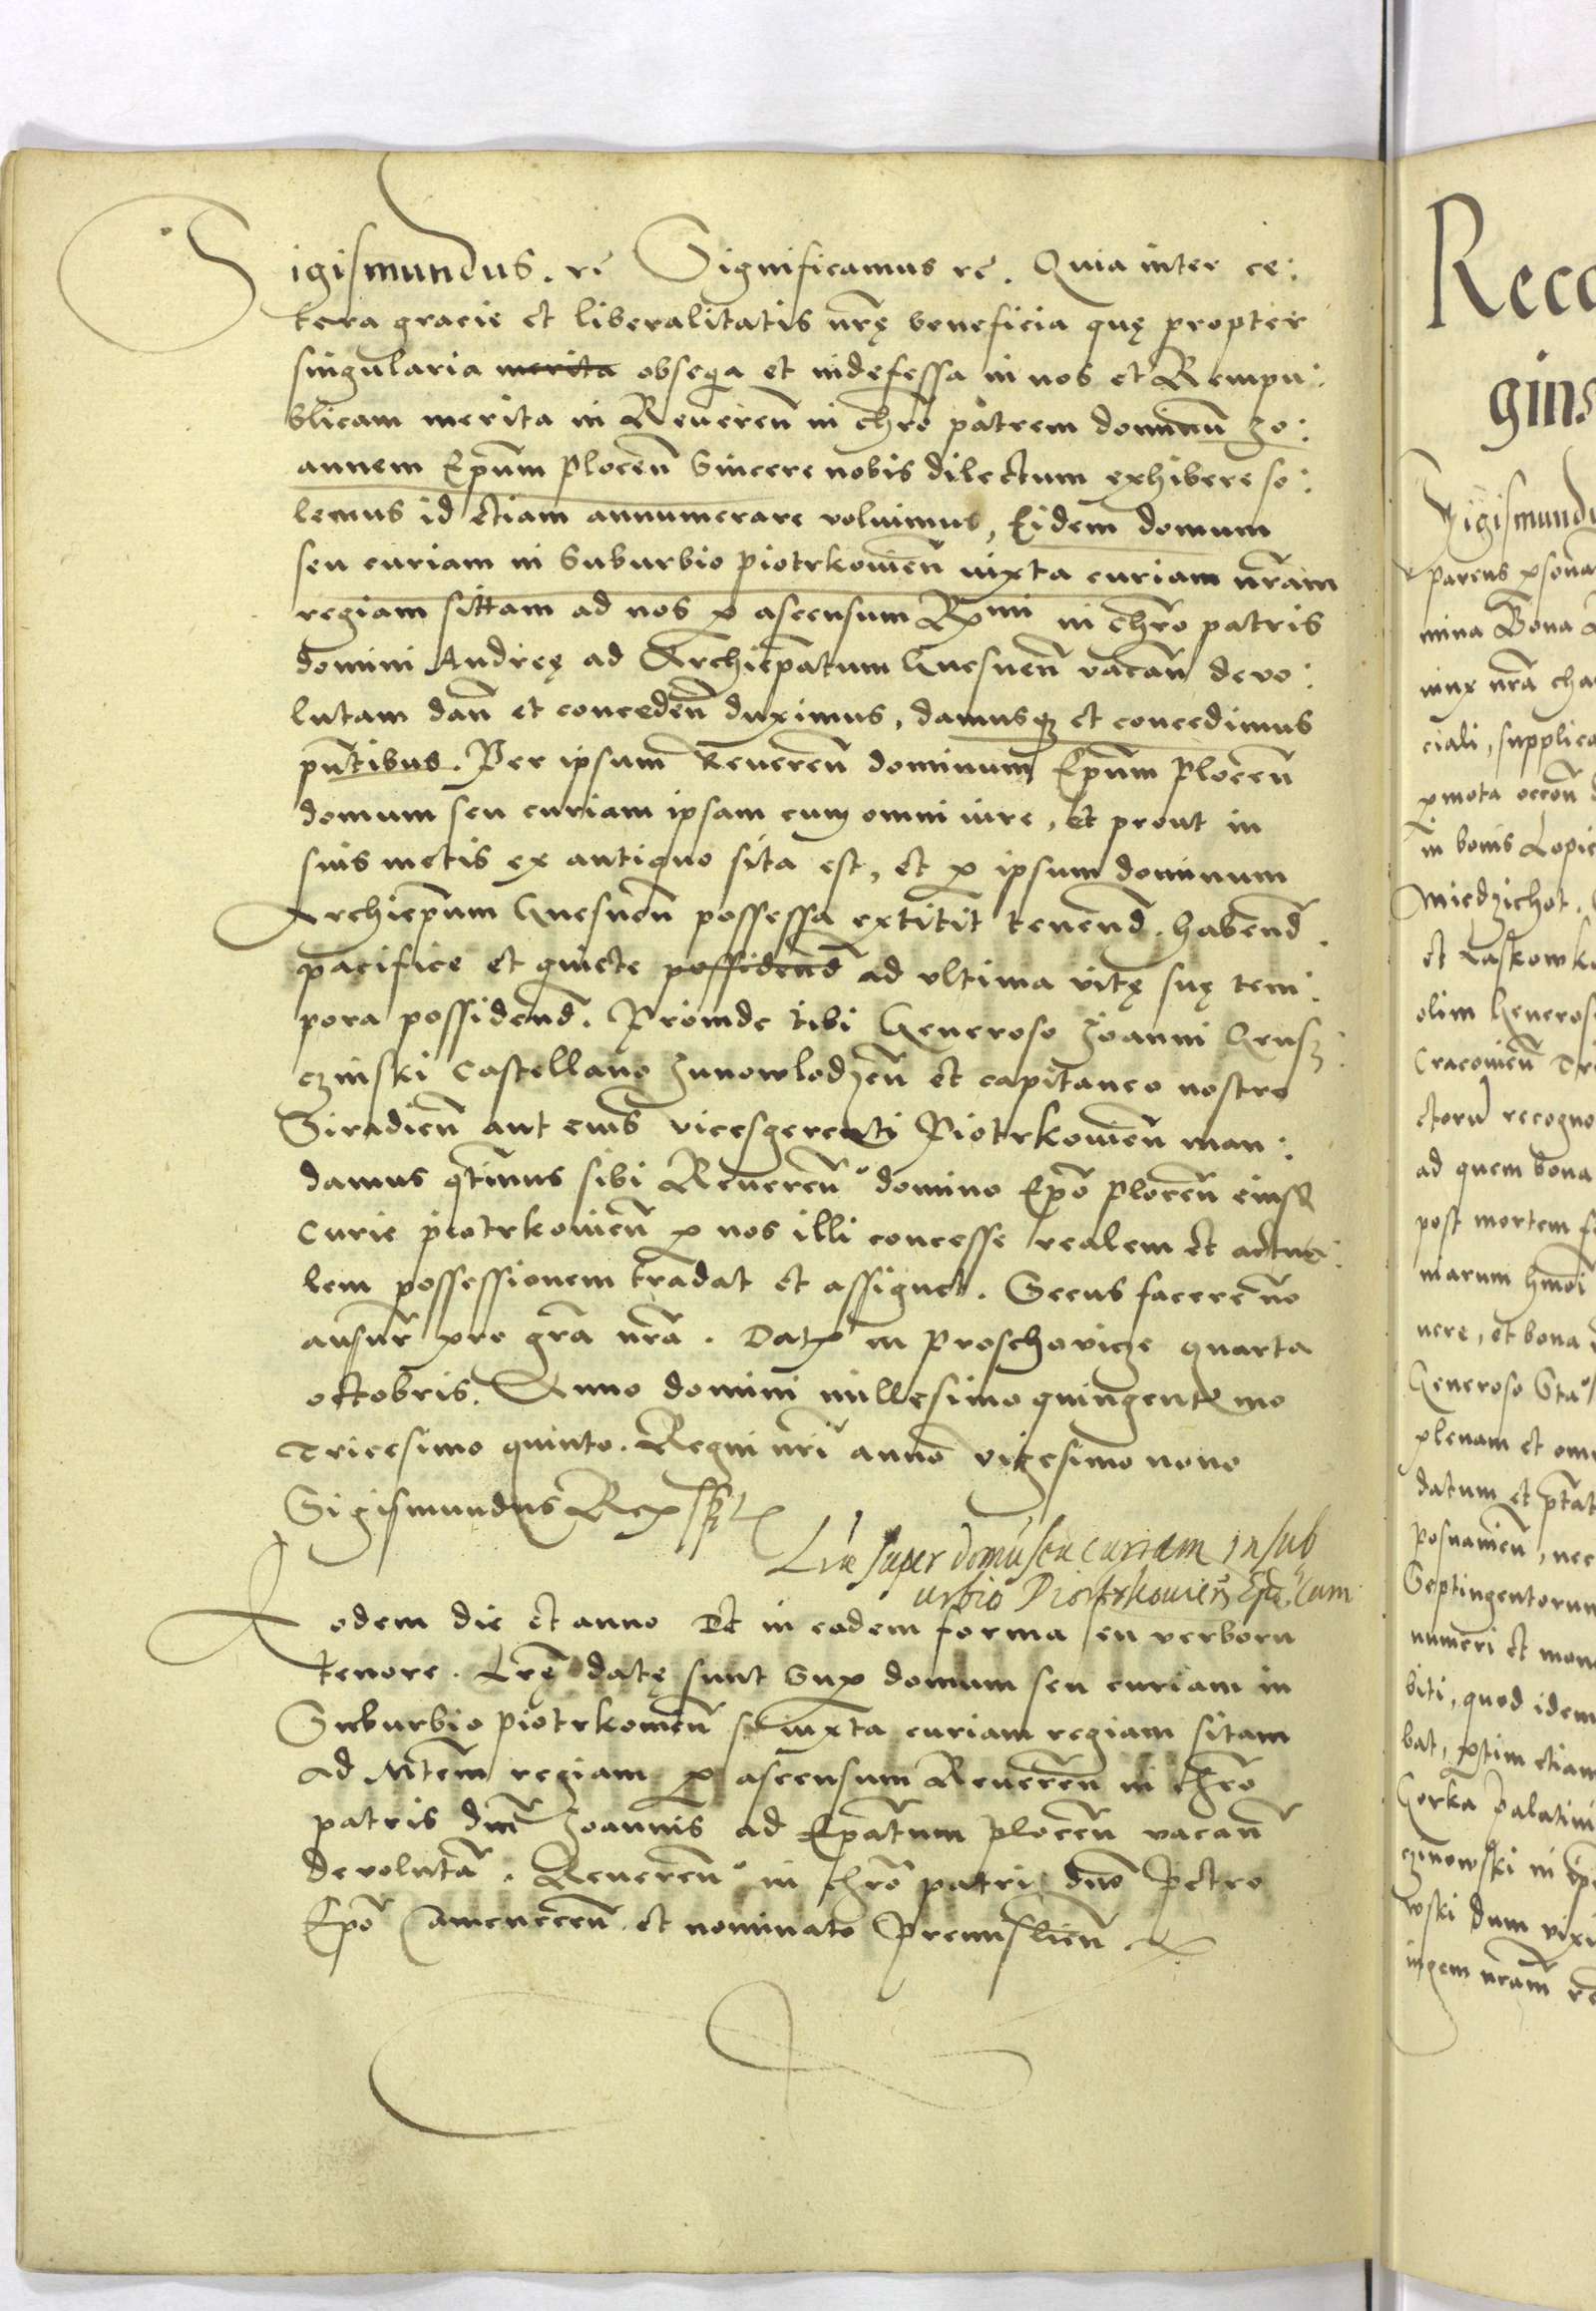 Sigismundus. rc̄ Significamus rc̄. Quia inter ce:
tera gracie et liberalitatis nrę beneficia quę propter
singularia merita obseqa et indefessa in nos et Rempu:
blicam merita in Reueren̄ in chro patrem dominū Jo:
annem Epūm plocen̄ Sincere nobis dilectum exhibere so:
lemus id etiam annumerare voluimus, Eidem domum
seu curiam in Suburbio piotrkouien̄ iuxta curiam nr̄am
regiam sittam ad nos p ascensum Rx̄mi in chr̄o patris
domini Andreę ad Archiep̄atum Gnesnen̄ vacan̄ devo:
lutam dan̄ et conceden̄ duximus, damusq et concedimus
pn̄tibus. Per ipsum Reueren̄ dominum Epūm plocen̄
domum seu curiam ipsam cum omni iure, et prout in
suis metis ex antiquo sita est, et p ipsum dominum
Archiepūm Gnesnen̄ possessa extitit tenend̄. habend̄.
pacifice et quiete possidend̄ ad vltima vitę suę tem:
pora possidend̄. Proinde tibi Generoso Joanni Grusz:
czinski Castellano Junowlodzen̄ et capitaneo nostro
Siradien̄ aut eius vicesgerenti Piotrkouien̄ man:
damus qtinus sibi Reueren̄o domino Epō plocen̄ eiusd̄
Curie piotrkouien̄ p nos illi concesse realem et actua:
lem possessionem tradat et assignet. Secus facere nō
ausur̄ pro gr̄a nr̄a. Datx in Proschovicze quarta
octobris. Anno domini millesimo quingentxmo
Tricesimo quinto. Regni nr̄i anno vigesimo nono
Sigismundus Rex sszt
Lrae super domū seu curiam in sub
urbio Piotrkouien̄ Epō
Eodem die et anno Et in eadem forma seu verborū
tenore. Lrę datę sunt Sup domum seu curiam in
Suburbio piotrkouien̄ iuxta curiam regiam sitam
ad Mtem regiam p ascensum Reueren̄ in chr̄o
patris dm̄ Joannis ad Epatum plocen̄ vacan̄
devolutā. Reueren̄o in chr̄o patri dn̄o Petro
Epō Camenecen̄ et nominato Premislien̄
Reco
gins
Sigismundu
parens psona
mina Bona
nux nr̄a cha
ciali, supplica
pmota
in bonis Lopie
Miedzichot.
et Laskowk
olim Generosi
Cracouien̄
ctorū recogno
ad quem bona
post mortem
niarum hmōi
nere, et bona
Generoso Sta
plenam et om
datum et ptat
posnanien̄, nec
Septingentorum
numeri et mon
biti, quod idem
bat, ptim etiam
Gorka Palatini
cznowski in
wski dum vixi
ingem nr̄am